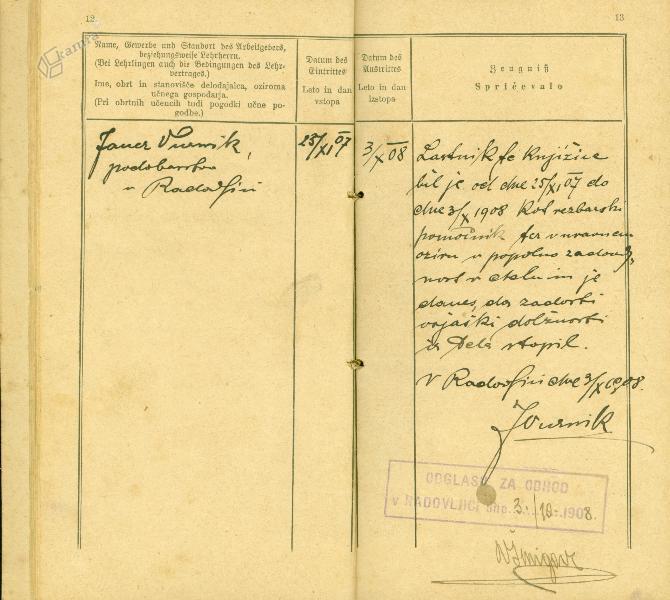 12
13
kamra
Name, Gewerbe und Standort des Arbeitgebers,
beziehungsweise Lehrherrn.
(Bei Lehrlingen auch die Bedingungen des Lehr-
vertrages.)
Ime, obrt in stanovišče delodajalca, oziroma
učnega gospodarja.
(Pri obrtnih učencih tudi pogodki učne po-
godbe.)
Datum des
Eintrittes
Leto in dan
vstopa
Datum des
Austrittes
Leto in dan
izstopa
Zeugniß
Spričevalo
Janez Vurnik,
podobarstvo
v Radovljici
25/XI 07
3/X 08
Lastnik te knjižice
bil je od dne 25/XI 07 do
dne 3/X 1908 kot rezbarski
pomočnik ter v nravnem
oziru v popolno zadovolj-
nost v delu in je
danes, da zadosti
vojaški dolžnosti
iz dela stopil.
V Radovljici dne 3/X 1908.
JVurnik
ODGLASU ZA ODHOD
v RADOVLJICI dne 3./10. 1908.